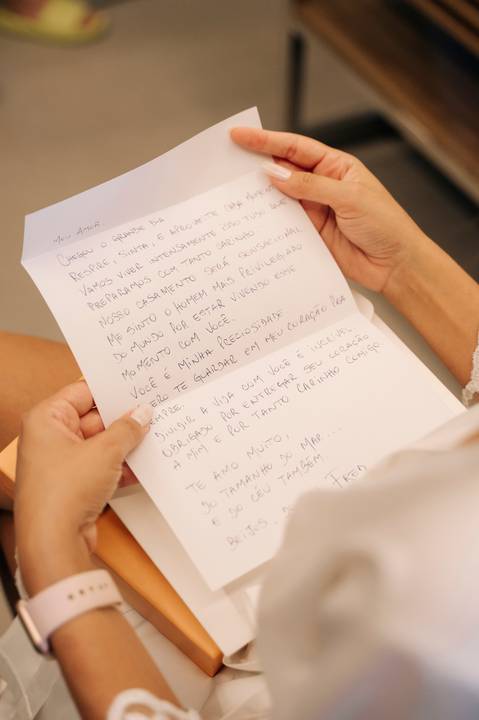 MEU AMOR
CHEGOU O GRANDE DIA
RESPIRE, SINTA, E APROVEITE CADA MOMENTO
VAMOS VIVER INTENSAMENTE ISSO TUDO QUE
PREPARAMOS COM TANTO CARINHO
NOSSO CASAMENTO SERÁ SENSACIONAL
ME SINTO O HOMEM MAIS PRIVILEGIADO
DO MUNDO POR ESTAR VIVENDO ESSE
MOMENTO COM VOCÊ.
VOCÊ É MINHA PRECIOSIDADE
ERO TE GUARDAR EM MEU CORAÇÃO PRA
EMPRE.
DIVIDIR A VIDA COM VOCÊ É INCRÍVEL.
OBRIGADO POR ENTREGAR SEU CORAÇÃO
A MIM E POR TANTO CARINHO COMIGO.
TE AMO MUITO,
DO TAMANHO DO MAR...
E DO CÉU TAMBÉM.
BEIJOS, FRED